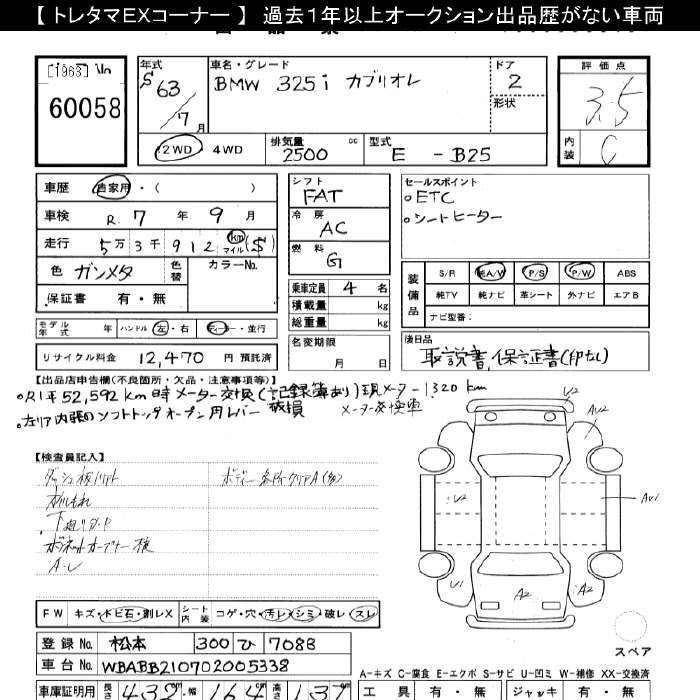 【 トレタマEXコーナー 】 過去１年以上オークション出品歴がない車両
[1963] No
60058
年式
S63/7月
車名・グレード
BMW 325i カブリオレ
ドア
2
形状
評価点
3.5
内装
C
2WD 4WD
排気量
2500 cc
型式
E - B25
車歴 自家用・( )
車検 R. 7 年 9 月
走行 5万 3千 912 km マイル ($)
色 ガンメタ
色替
カラーNo.
保証書 有・無
モデル年式 年
ハンドル 左・右
ディーラー・並行
リサイクル料金 12,470 円 預託済
シフト
FAT
冷房
AC
燃料
G
乗車定員 4 名
積載量 kg
総重量 kg
名変期限
月 日
セールスポイント
○ETC
○シートヒーター
装備品
S/R 純A/V P/S P/W ABS
純TV 純ナビ 革シート 外ナビ エアB
ナビ型番：
後日品
取説書,保証書(印なし)
【出品店申告欄(不良箇所・欠品・注意事項等)】
○R1年52,592km時メーター交換(記録簿あり)現メーター1320km
メーター交換車
○左リア内張のソフトトップオープン用レバー破損
【検査員記入】
ボディー各所クリアA(多)
下廻りサ.P
FW キズ・トビ石・割レX
シート内装 コゲ・穴・汚レ・シミ・破レ・スレ
登録No. 松本 300 ひ 7088
車台No. WBABB210702005338
車庫証明用 長さ 432 cm 幅 164 cm 高さ 137
U2
AU2
U2
AU1
U1
A2
A2
スペア
A-キズ C-腐食 E-エクボ S-サビ U-凹ミ W-補修 XX-交換済
工具 有・無 ジャッキ 有・無